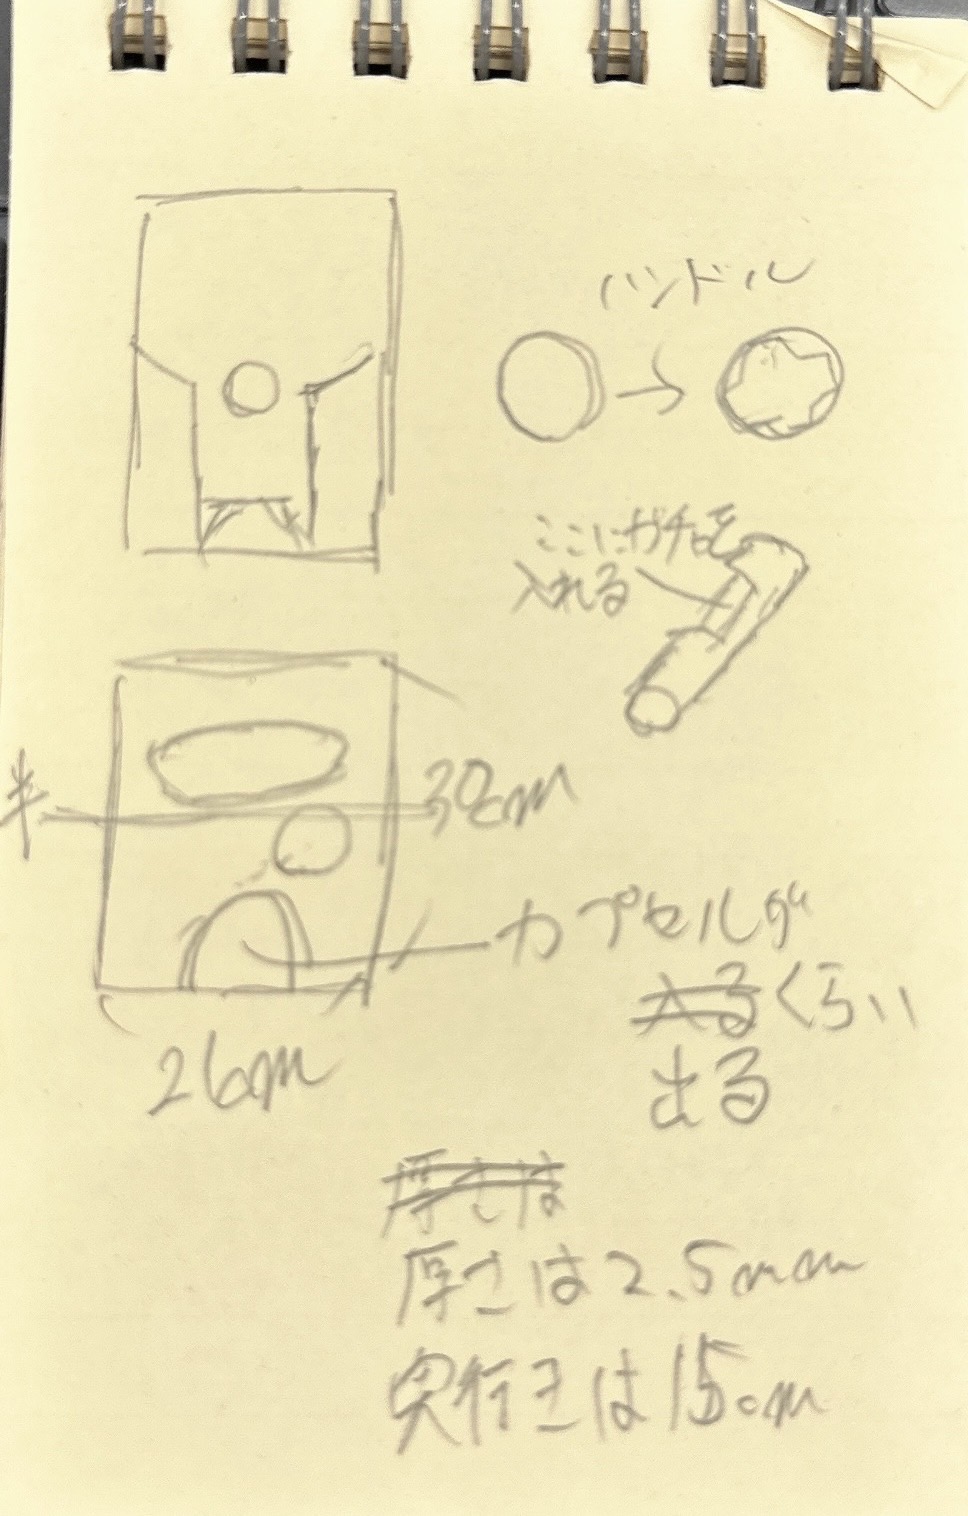 ハンドル
ここにガチャを
入れる
半
30cm
カプセルが
入るくらい
出る
26cm
厚さは
厚さは2.5mm
奥行きは15cm